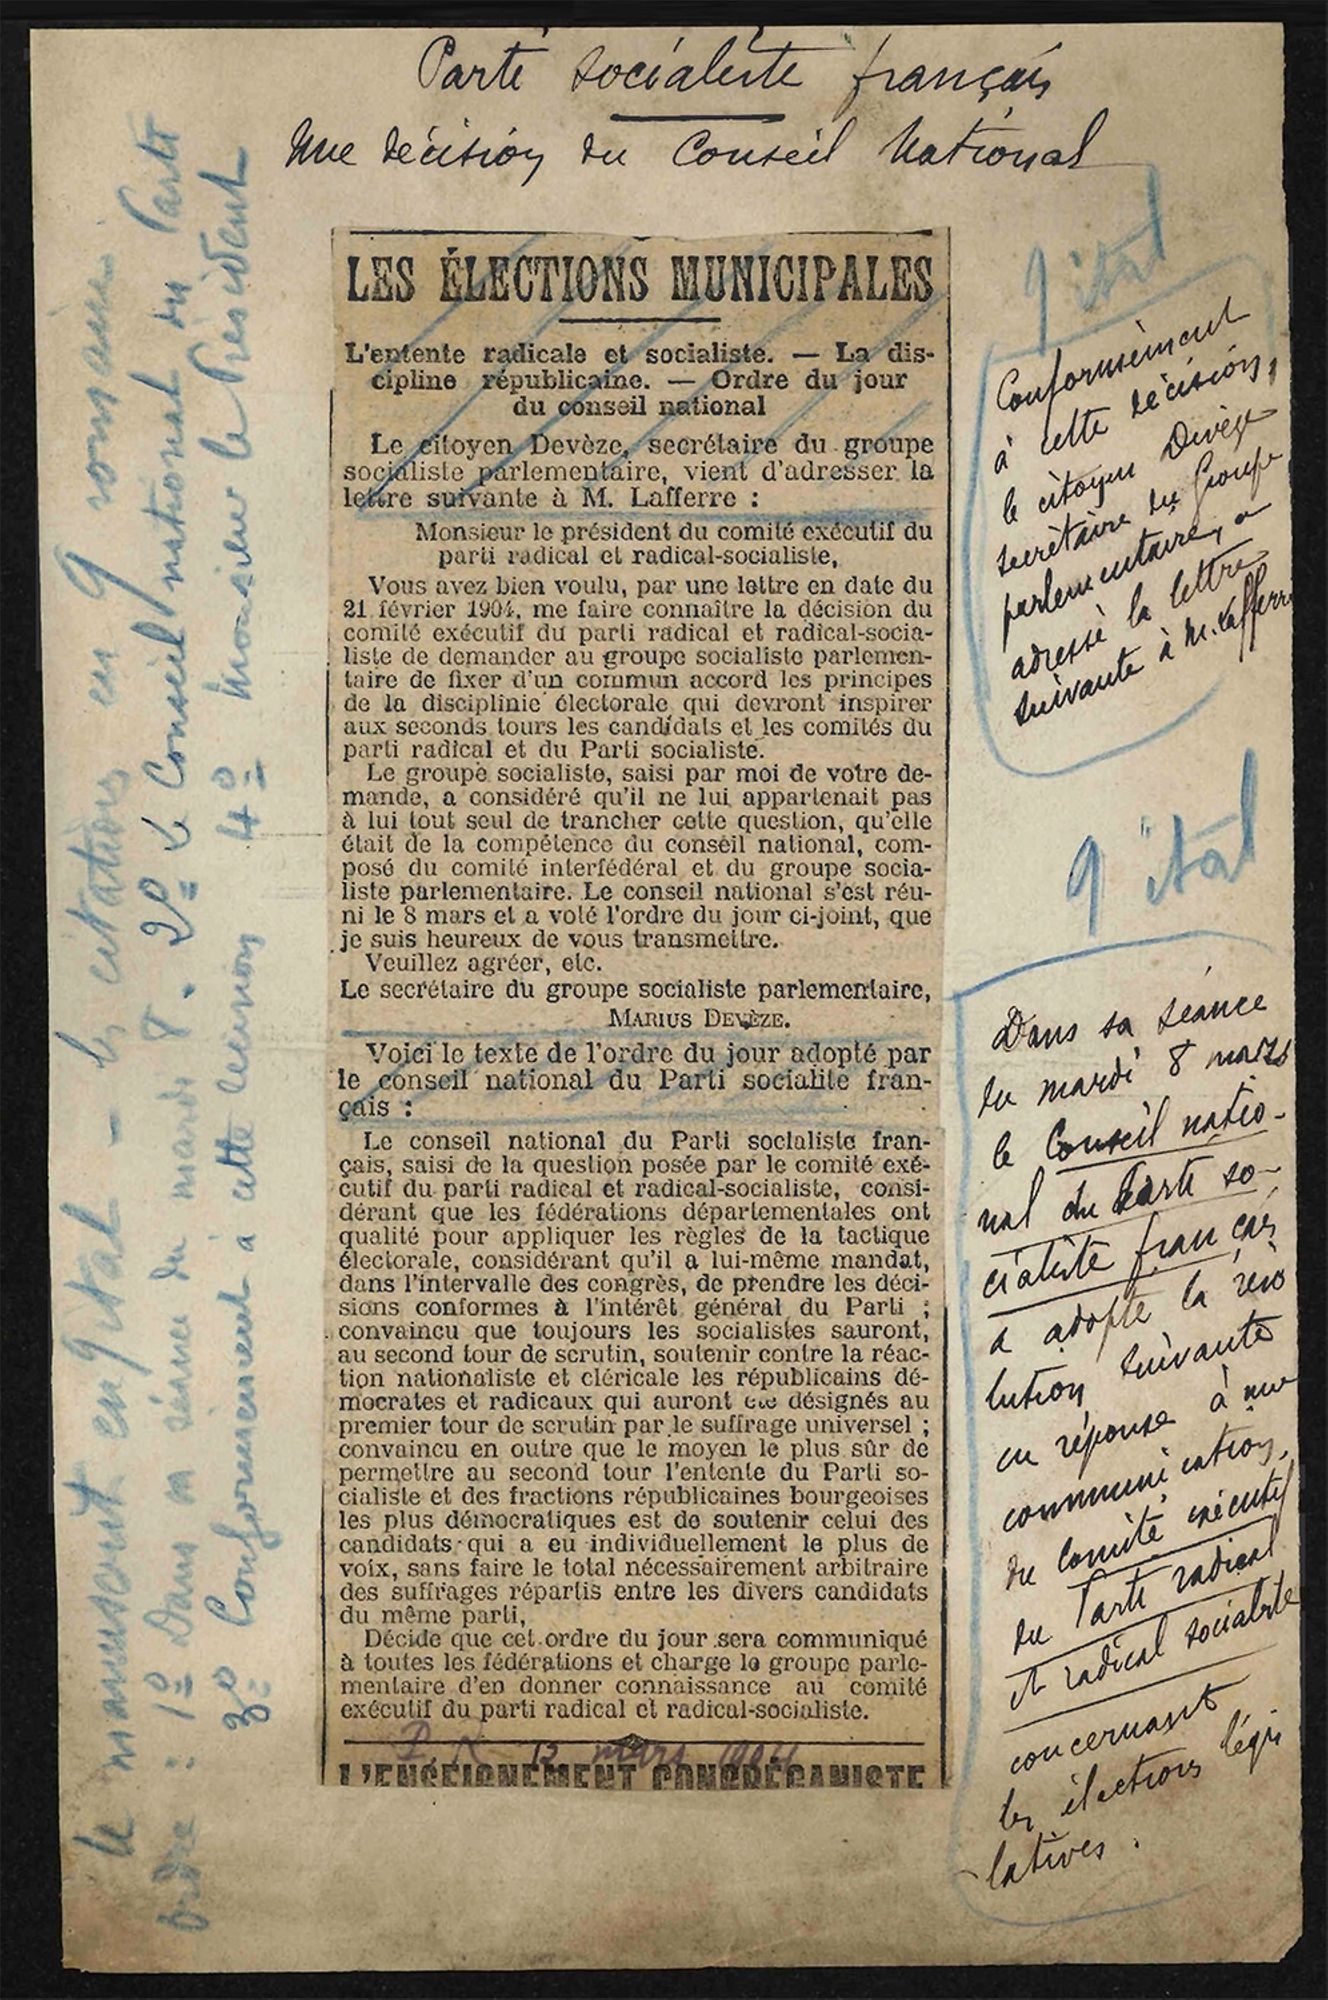 Parti socialiste français
Une décision du Conseil National
LES ÉLECTIONS MUNICIPALES
L'entente radicale et socialiste. — La dis-
cipline républicaine. — Ordre du jour
du conseil national
Le citoyen Devèze, secrétaire du groupe
socialiste parlementaire, vient d'adresser la
lettre suivante à M. Lafferre :
Monsieur le président du comité exécutif du
parti radical et radical-socialiste,
Vous avez bien voulu, par une lettre en date du
21 février 1904, me faire connaître la décision du
comité exécutif du parti radical et radical-socia-
liste de demander au groupe socialiste parlemen-
taire de fixer d'un commun accord les principes
de la disciplinie électorale qui devront inspirer
aux seconds tours les candidats et les comités du
parti radical et du Parti socialiste.
Le groupe socialiste, saisi par moi de votre de-
mande, a considéré qu'il ne lui appartenait pas
à lui tout seul de trancher cette question, qu'elle
était de la compétence du conseil national, com-
posé du comité interfédéral et du groupe socia-
liste parlementaire. Le conseil national s'est réu-
ni le 8 mars et a voté l'ordre du jour ci-joint, que
je suis heureux de vous transmettre.
Veuillez agréer, etc.
Le secrétaire du groupe socialiste parlementaire,
MARIUS DEVÈZE.
Voici le texte de l'ordre du jour adopté par
le conseil national du Parti socialite fran-
çais :
Le conseil national du Parti socialiste fran-
çais, saisi de la question posée par le comité exé-
cutif du parti radical et radical-socialiste, consi-
dérant que les fédérations départementales ont
qualité pour appliquer les règles de la tactique
électorale, considérant qu'il a lui-même mandat,
dans l'intervalle des congrès, de prendre les déci-
sions conformes à l'intérêt général du Parti ;
convaincu que toujours les socialistes sauront,
au second tour de scrutin, soutenir contre la réac-
tion nationaliste et cléricale les républicains dé-
mocrates et radicaux qui auront été désignés au
premier tour de scrutin par le suffrage universel ;
convaincu en outre que le moyen le plus sûr de
permettre au second tour l'entente du Parti so-
cialiste et des fractions républicaines bourgeoises
les plus démocratiques est de soutenir celui des
candidats qui a eu individuellement le plus de
voix, sans faire le total nécessairement arbitraire
des suffrages répartis entre les divers candidats
du même parti,
Décide que cet ordre du jour sera communiqué
à toutes les fédérations et charge le groupe parle-
mentaire d'en donner connaissance au comité
exécutif du parti radical et radical-socialiste.
P. R 12 mars 1904
L'ENSEIGNEMENT CONGRÉGANISTE
9 ital
Conformément
à cette décision,
le citoyen Devèze
secrétaire du Groupe
parlementaire, a
adressé la lettre
suivante à M. Lafferre
9 ital
Dans sa séance
du mardi 8 mars
le Conseil natio-
nal du Parti so-
cialiste français
a adopté la réso
lution suivante
en réponse à une
communication
du Comité exécutif
du Parti radical
et radical socialiste
concernant
les élections légis
latives.
le manuscrit en 9 ital - les citations en 9 romain
ordre : 1º Dans sa séance du mardi 8. 2º Le Conseil national du Parti
3º Conformément à cette 4º Monsieur le Président